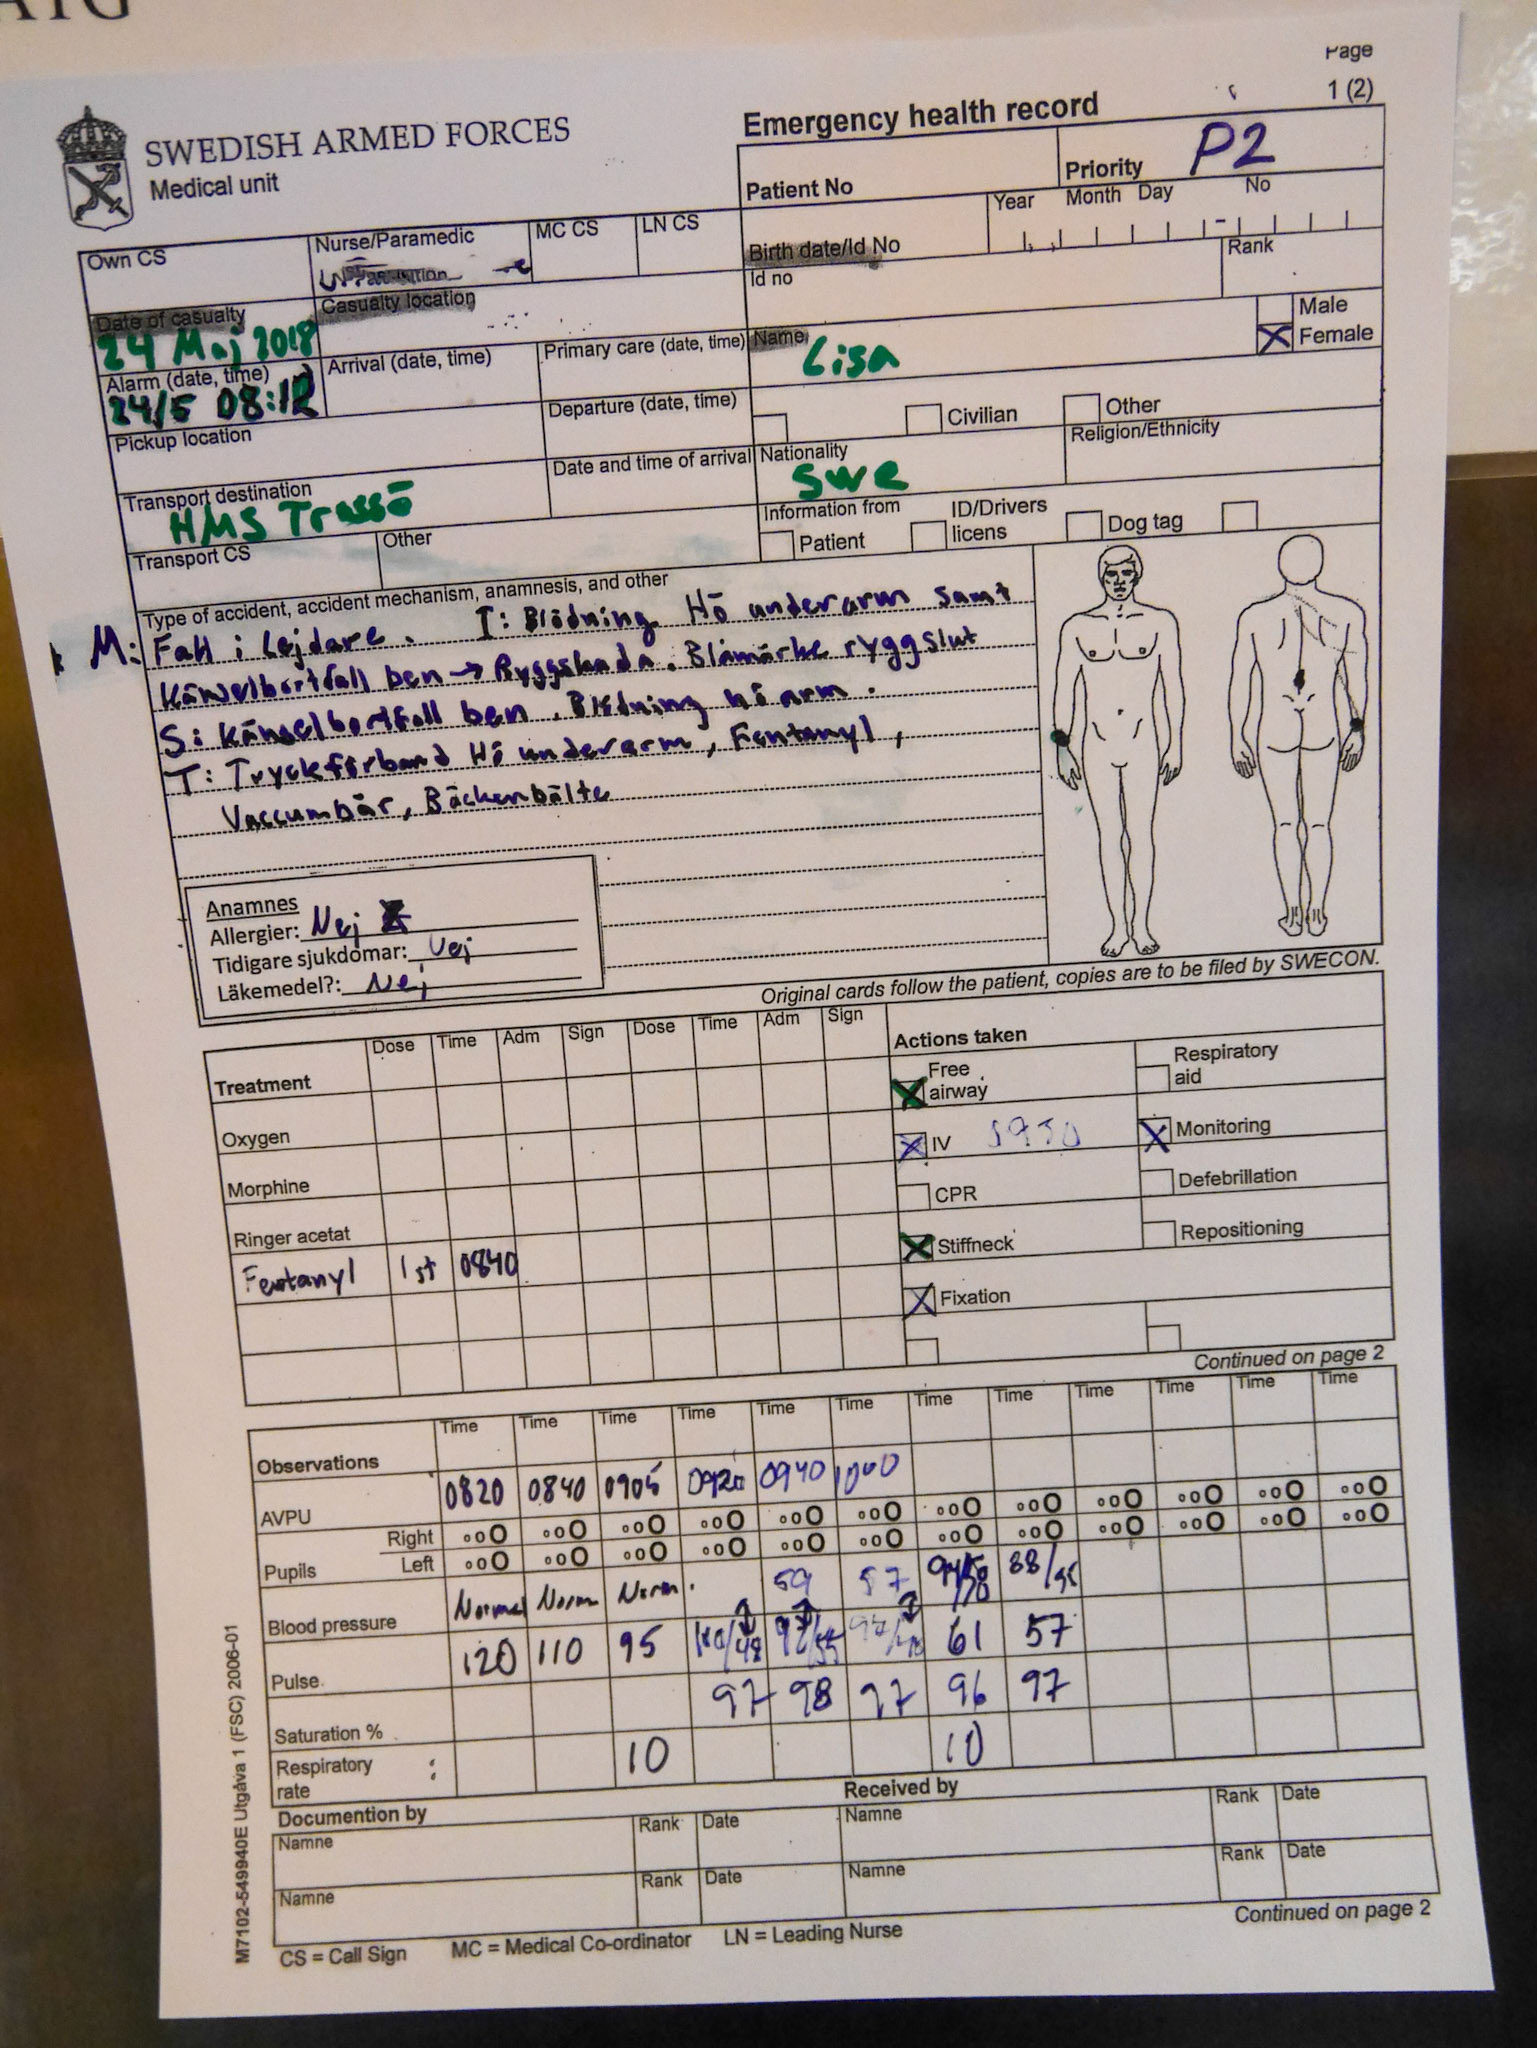 Page
1 (2)
SWEDISH ARMED FORCES
Medical unit
Emergency health record
Patient No
Priority P2
Own CS
Nurse/Paramedic
MC CS
LN CS
Birth date/Id No
Year Month Day No
-
Id no
Rank
Date of casualty
24 Maj 2018
Casualty location
Name
Lisa
Male
Female
Alarm (date, time)
24/5 08:12
Arrival (date, time)
Primary care (date, time)
Departure (date, time)
Civilian
Other
Pickup location
Date and time of arrival
Nationality
Swe
Religion/Ethnicity
Transport destination
HMS Trossö
Information from
Patient
ID/Drivers
licens
Dog tag
Transport CS
Other
Type of accident, accident mechanism, anamnesis, and other
M: Fall i Lejdare. I: Blödning Hö underarm samt
Känselbortfall ben → Ryggskada. Blåmärke ryggslut
S: Känselbortfall ben. Blödning hö arm.
T: Tryckförband Hö underarm, Fentanyl,
Vaccumbår, Bäckenbälte
Anamnes
Allergier: Nej
Tidigare sjukdomar: Nej
Läkemedel?: Nej
Original cards follow the patient, copies are to be filed by SWECON.
Treatment Dose Time Adm Sign Dose Time Adm Sign
Oxygen
Morphine
Ringer acetat
Fentanyl 1st 0840
Actions taken
Free
airway
Respiratory
aid
IV
Monitoring
CPR
Defebrillation
Stiffneck
Repositioning
Fixation
Continued on page 2
Observations Time Time Time Time Time Time Time Time Time Time Time Time
AVPU 0820 0840 0905 0920 0940 1000
Pupils Right
Left
Blood pressure Normal Norm Norm. 59 57 88/
Pulse 120 110 95 61 57
Saturation % 97 98 97 96 97
Respiratory
rate : 10 10
Documention by
Received by
Namne Rank Date Namne Rank Date
Namne Rank Date Namne Rank Date
Continued on page 2
CS = Call Sign MC = Medical Co-ordinator LN = Leading Nurse
M7102-549940E Utgåva 1 (FSC) 2006-01